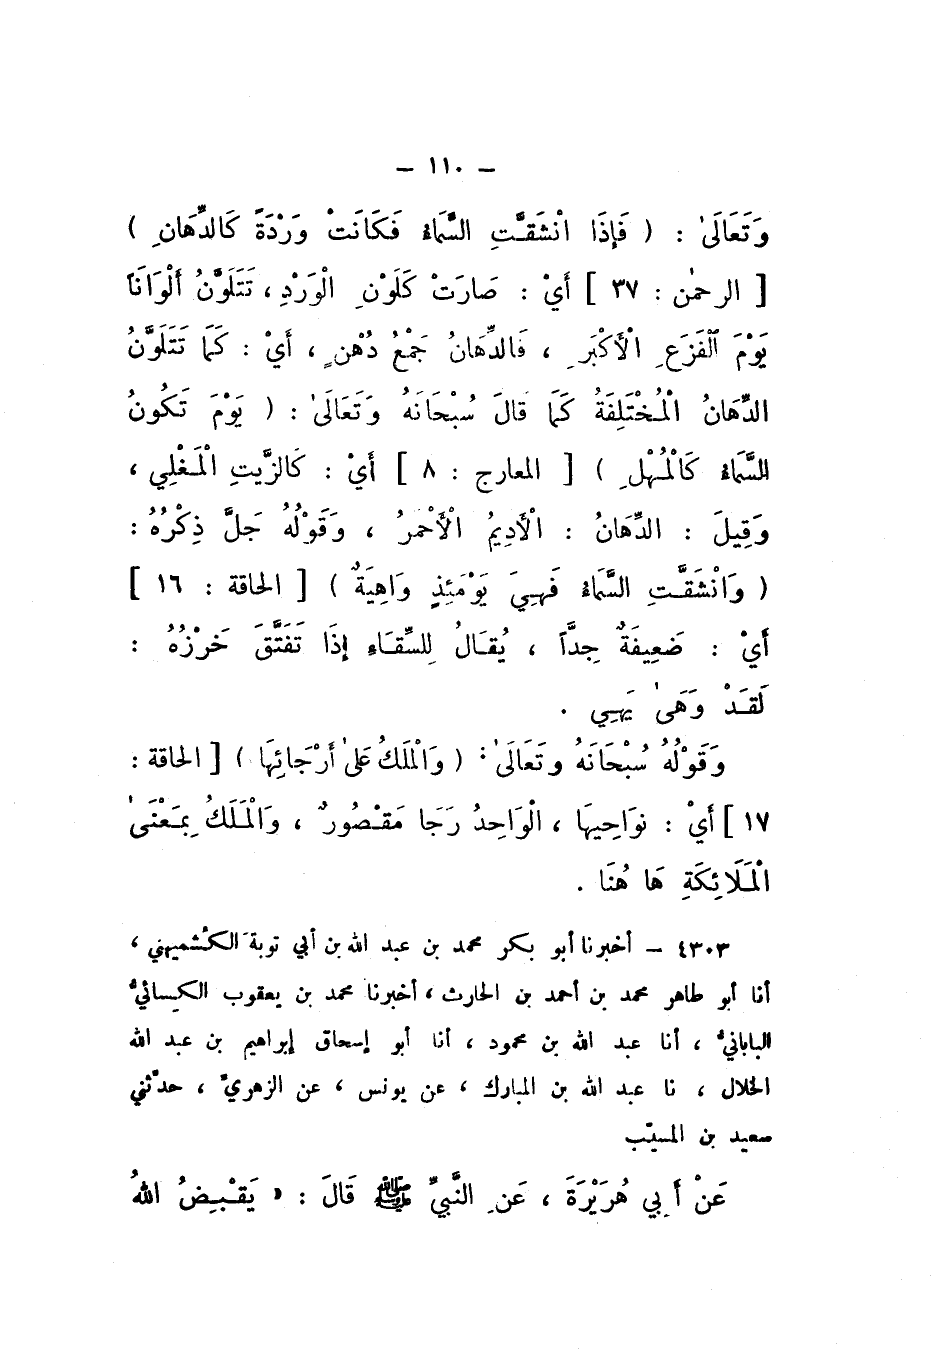 – ١١٠ –
وَتَعَالَىٰ : ( فَإِذَا انْشَقَّتِ السَّمَاءُ فَكَانَتْ وَرْدَةً كَالدِّهَانِ )
[ الرحمٰن : ٣٧ ] أَيْ : صَارَتْ كَلَوْنِ الْوَرْدِ ، تَتَلَوَّنُ أَلْوَانًا
يَوْمَ الْفَزَعِ الْأَكْبَرِ ، فَالدِّهَانُ جَمْعُ دُهْنٍ ، أَيْ : كَمَا تَتَلَوَّنُ
الدِّهَانُ الْمُخْتَلِفَةُ كَمَا قَالَ سُبْحَانَهُ وَتَعَالَىٰ : ( يَوْمَ تَكُونُ
السَّمَاءُ كَالْمُهْلِ ) [ المعارج : ٨ ] أَيْ : كَالزَّيْتِ الْمَغْلِي ،
وَقِيلَ : الدِّهَانُ : الْأَدِيمُ الْأَحْمَرُ ، وَقَوْلُهُ جَلَّ ذِكْرُهُ :
( وَانْشَقَّتِ السَّمَاءُ فَهِيَ يَوْمَئِذٍ وَاهِيَةٌ ) [ الحاقة : ١٦ ]
أَيْ : ضَعِيفَةٌ جِدًّا ، يُقَالُ لِلسِّقَاءِ إِذَا تَفَتَّقَ خَرْزُهُ :
لَقَدْ وَهَىٰ يَهِي .
وَقَوْلُهُ سُبْحَانَهُ وَتَعَالَىٰ : ( وَالْمَلَكُ عَلَىٰ أَرْجَائِهَا ) [ الحاقة :
١٧ ] أَيْ : نَوَاحِيهَا ، الْوَاحِدُ رَجَا مَقْصُورٌ ، وَالْمَلَكُ بِمَعْنَىٰ
الْمَلَائِكَةِ هَا هُنَا .
٤٣٠٣ – أخبرنا أبو بكر محمد بن عبد الله بن أبي توبة الكُشميهني ،
أنا أبو طاهر محمد بن أحمد بن الحارث ، أخبرنا محمد بن يعقوب الكسائيُّ
الباباني ، أنا عبد الله بن محمود ، أنا أبو إسحاق إبراهيم بن عبد الله
الخلال ، نا عبد الله بن المبارك ، عن يونس ، عن الزهريّ ، حدّثني
سعيد بن المسيّب
عَنْ أَبِي هُرَيْرَةَ ، عَنِ النَّبِيِّ ﷺ قَالَ : « يَقْبِضُ اللهُ